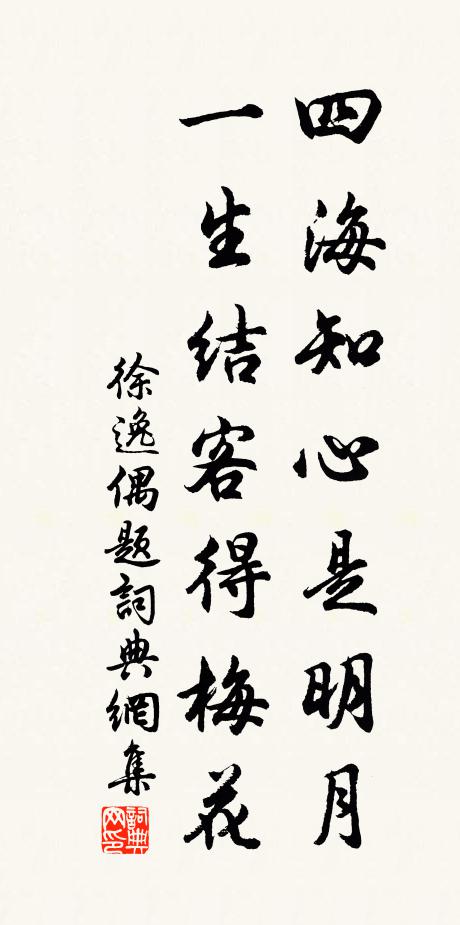 四海知心是明月
一生结客得梅花
徐逸偶题詞典網集
詞典网印